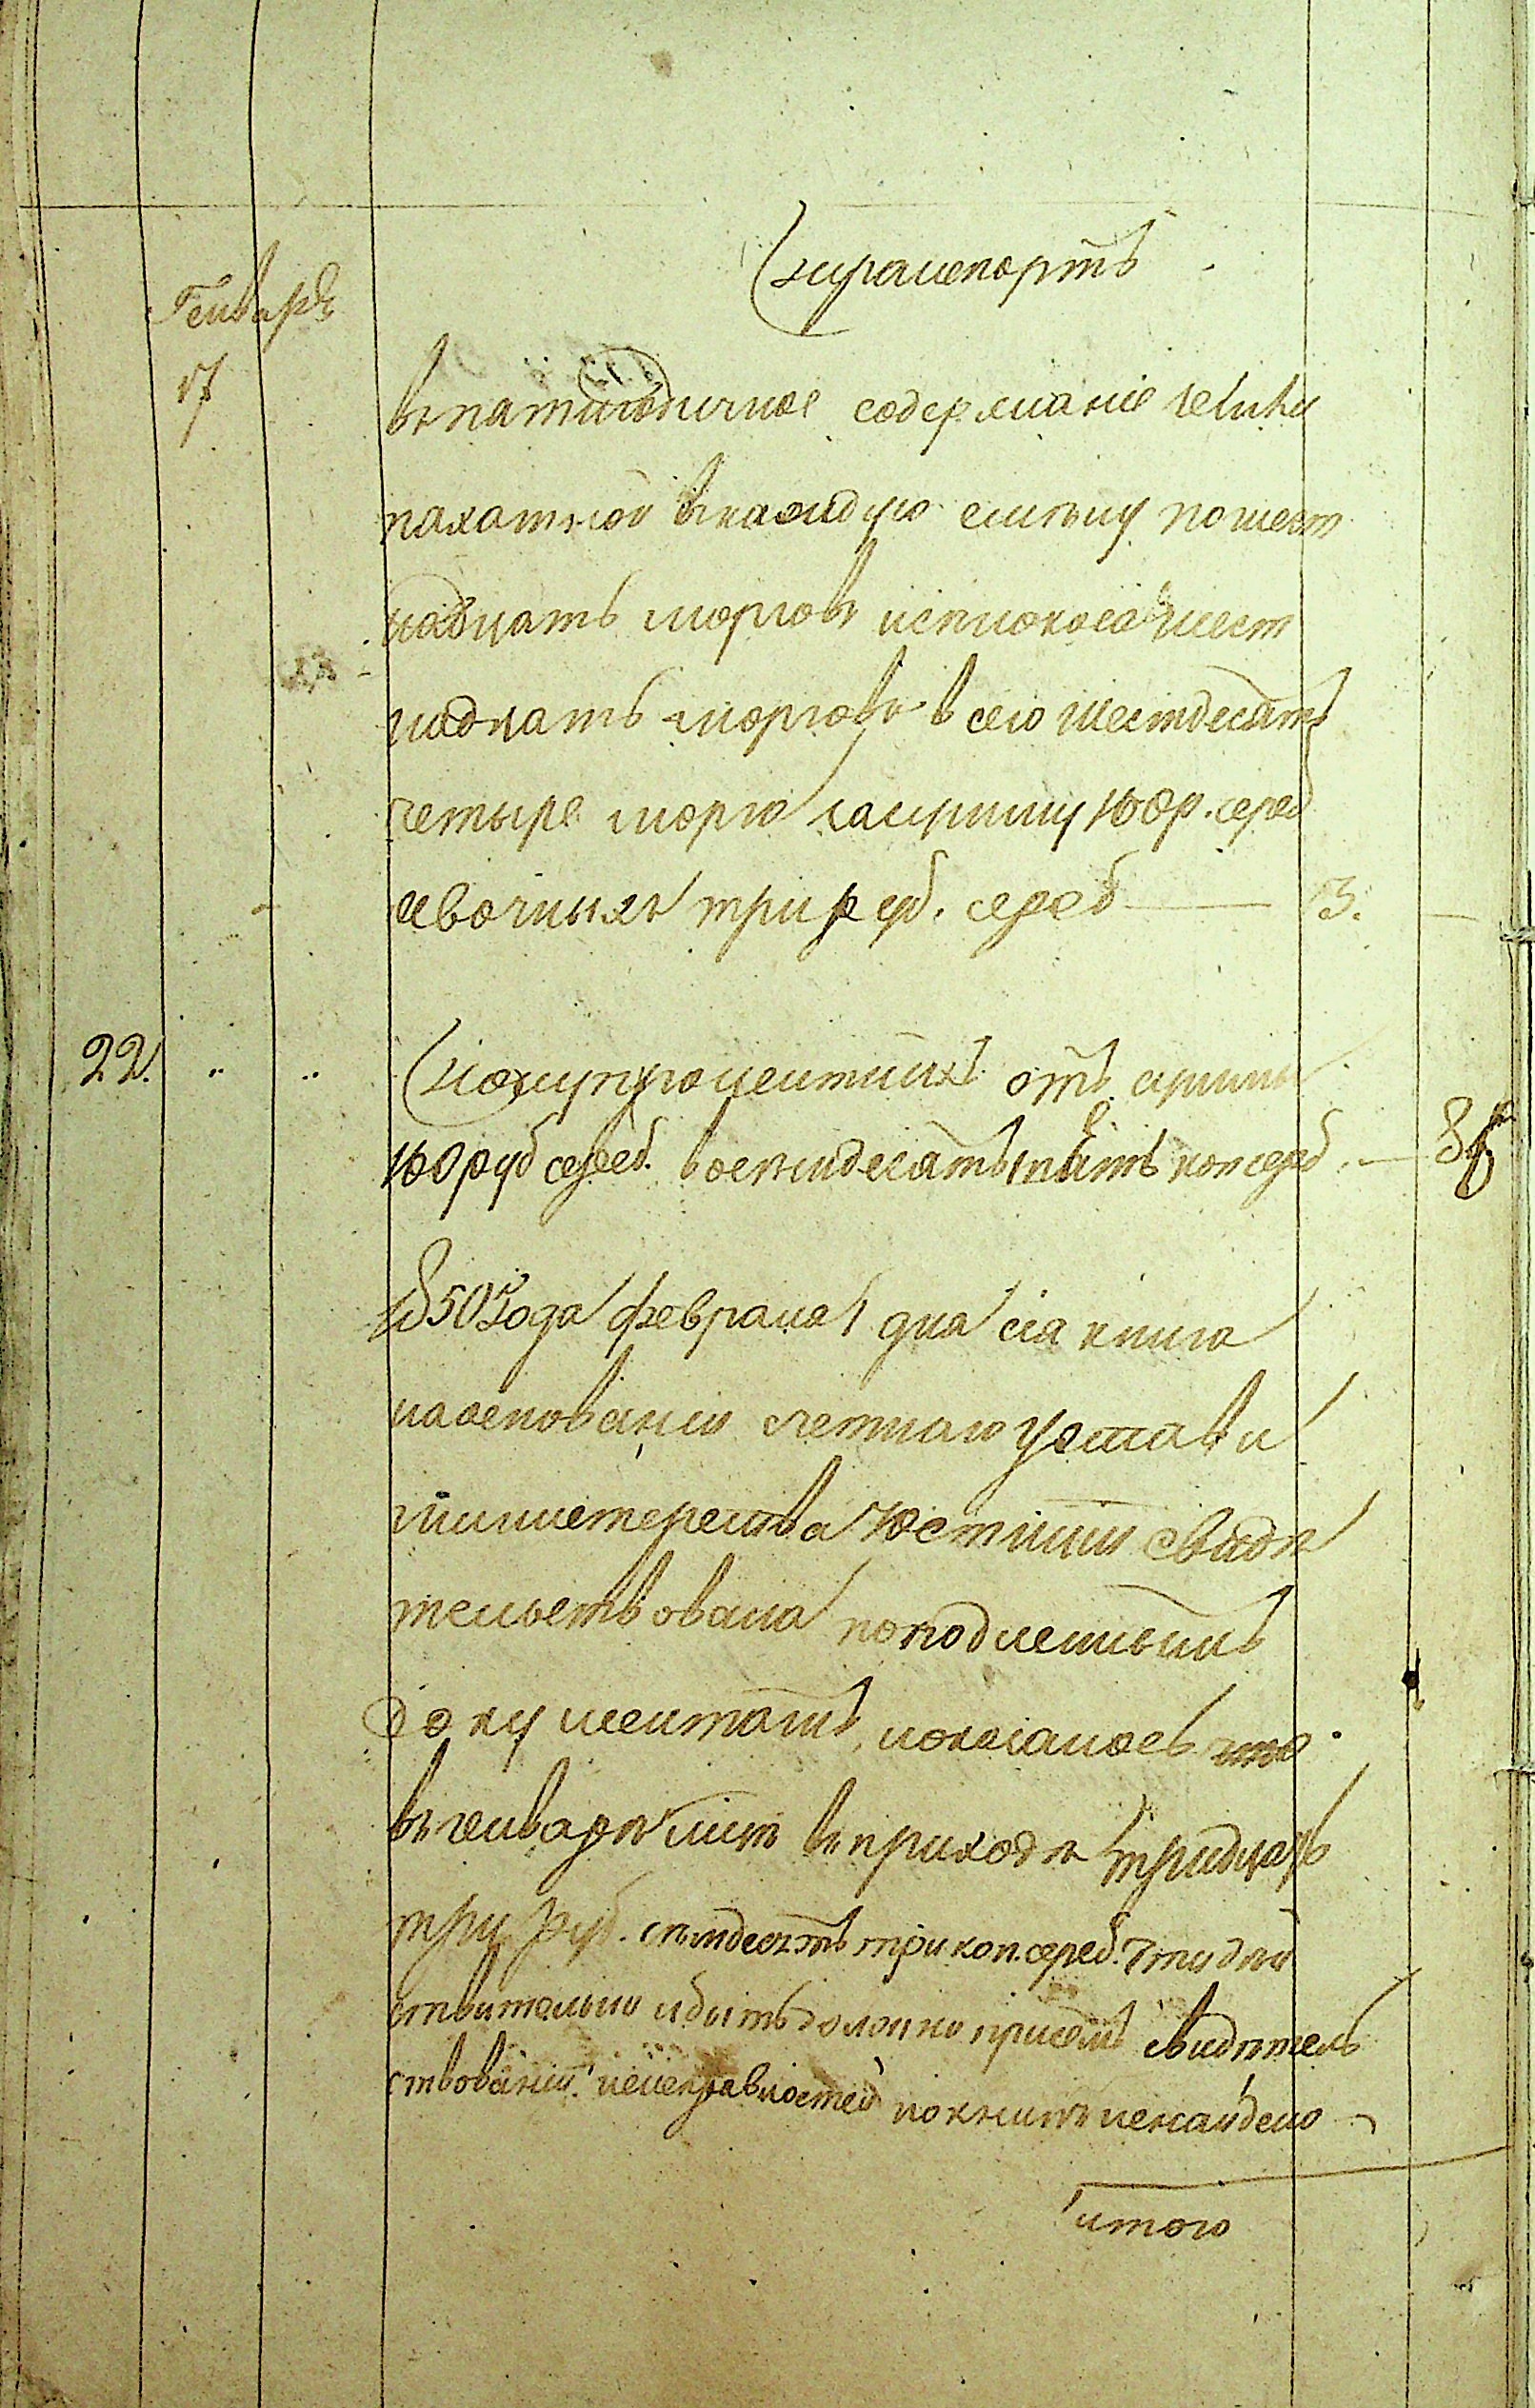 Транспортъ
Генварь
17
въ пятилѣтнее содержаніе земли
пахатной въ каждую смѣну по шест
надцать моргов и сѣнокоса шест
надцать моргов всего шестдесятъ
четыре морга за сумму 160 р. сереб
явочныхъ три руб. сереб — 3.
22. " " Полупроцентныхъ отъ суммы
160 руб сереб. восемдесятъ пять коп сереб. — 85
1850 года февраля 1 дня сія книга
на основаніи счетнаго устава и
министерства Юстиціи свидѣ
тельствована по подлиннымъ
документамъ, показалось что
въ генварѣ мцѣ въ приходѣ тридцать
три руб. семдесятъ три коп. сереб. что дѣй
ствительно и быть должно при семъ свидѣтель
ствованіи неисправностей по книгѣ не найдено
итого